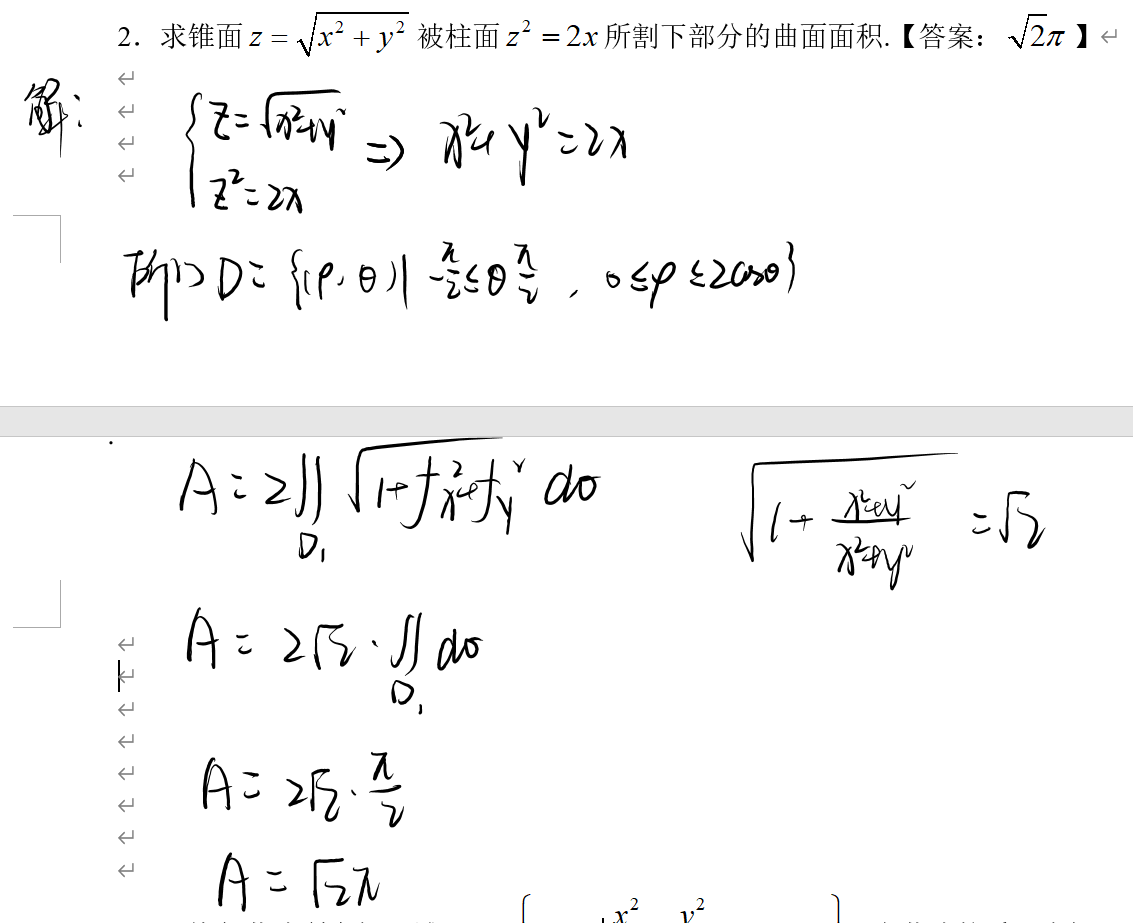 2. 求锥面 z = √(x² + y²) 被柱面 z² = 2x 所割下部分的曲面面积.【答案: √2π 】
解:
{ z = √(x²+y²)
z² = 2x ⇒ x²+y² = 2x
所以 D = {(ρ, θ) | -π/2 ≤ θ π/2 , 0 ≤ ρ ≤ 2cosθ}
A = 2∬_D₁ √(1+f_x²+f_y²) dσ √(1 + (x²+y²)/(x²+y²)) = √2
A = 2√2 · ∬_D₁ dσ
A = 2√2 · π/2
A = √2π
x² y²